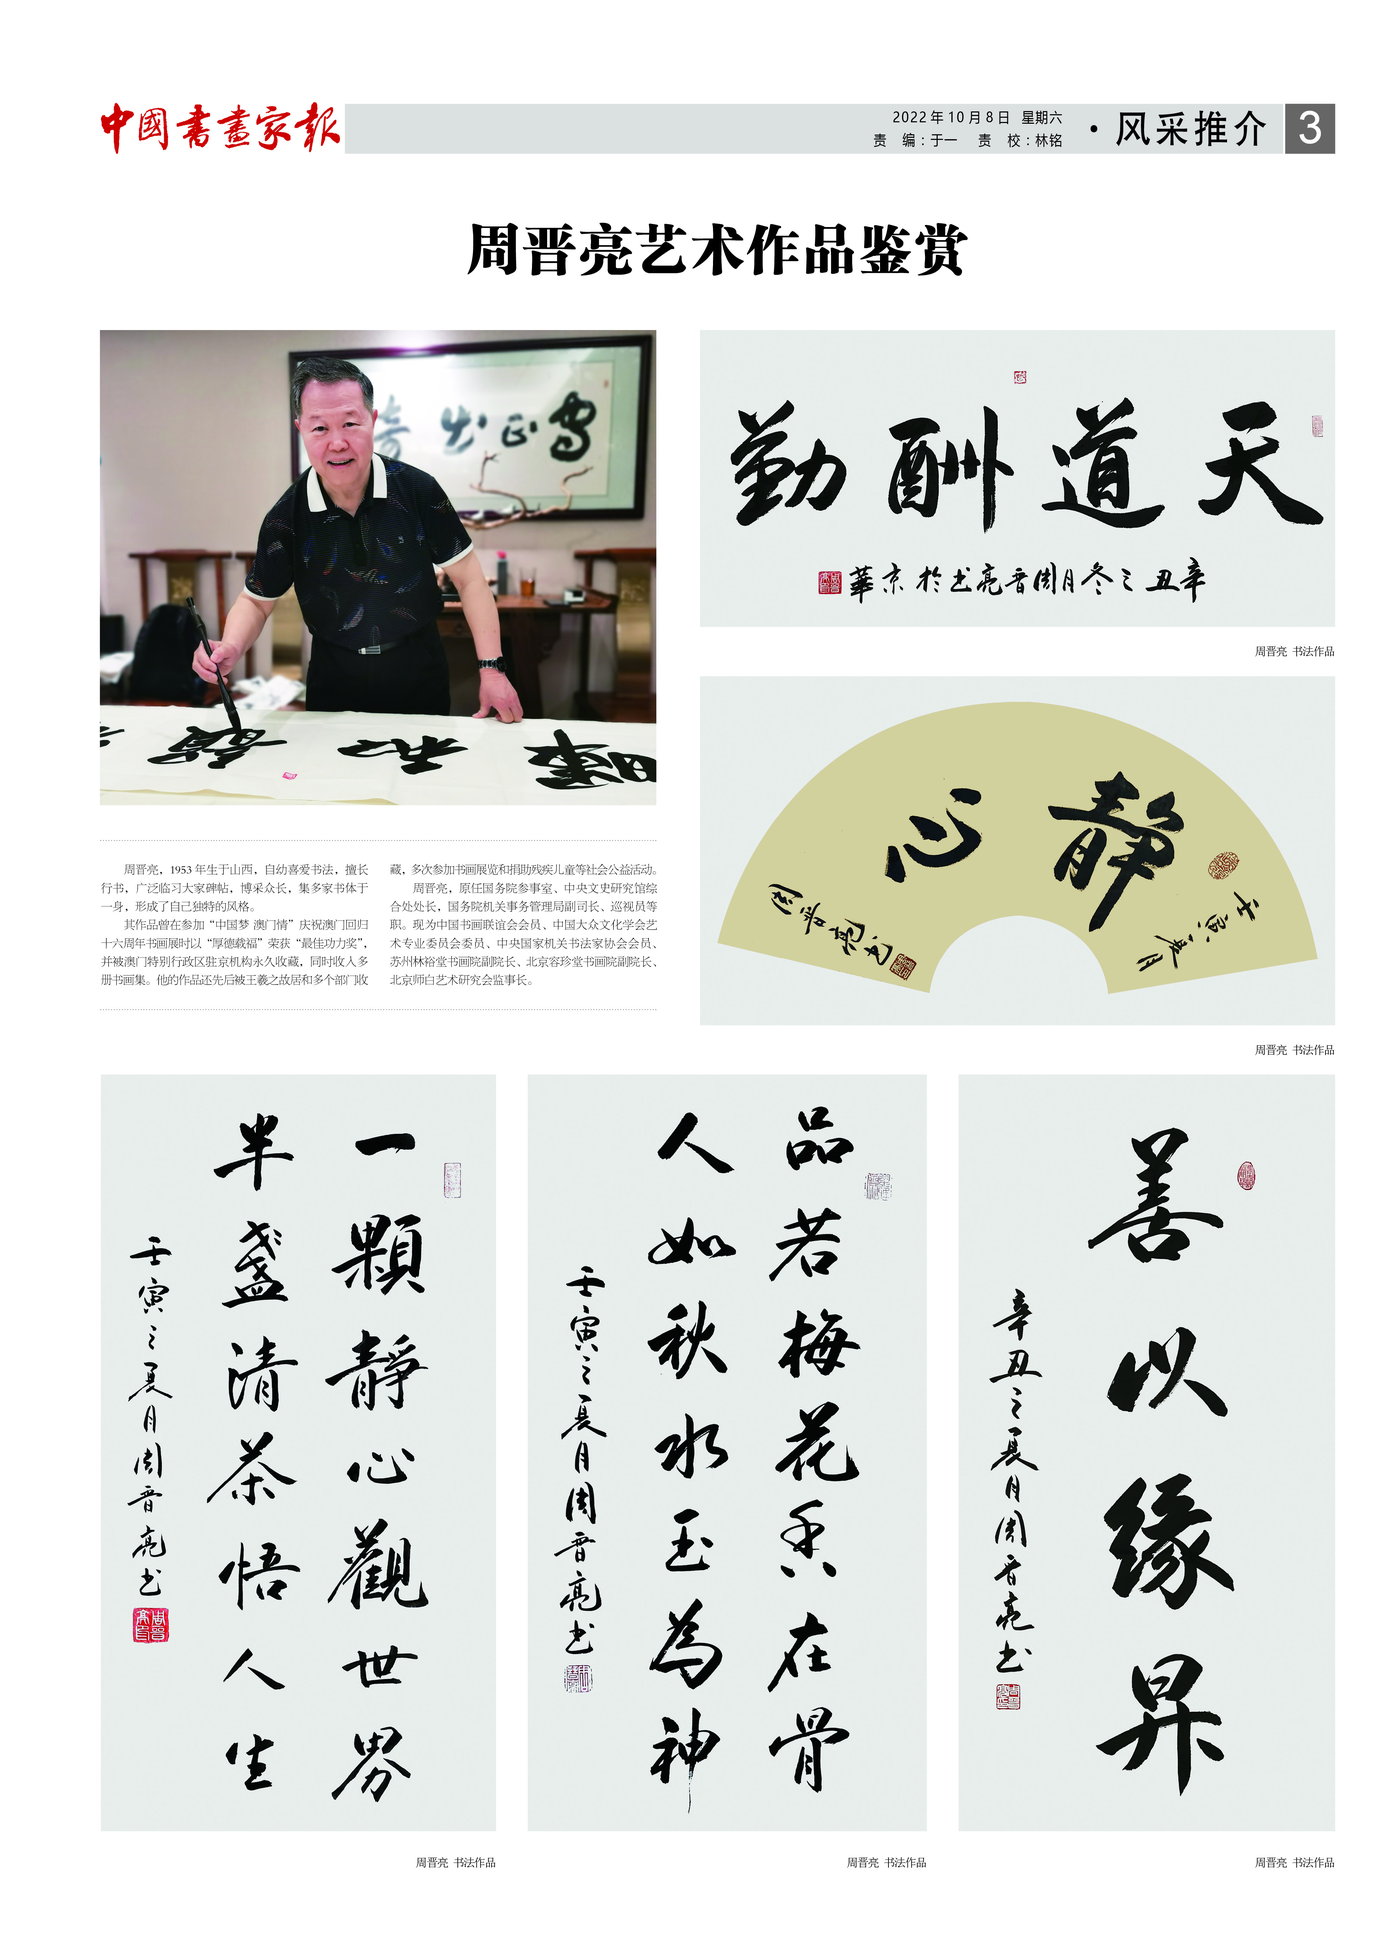 中國書畫家報
2022年10月8日 星期六
责 编：于一 责 校：林铭
·风采推介
3
周晋亮艺术作品鉴赏
周晋亮，1953年生于山西，自幼喜爱书法，擅长
行书，广泛临习大家碑帖，博采众长，集多家书体于
一身，形成了自己独特的风格。
其作品曾在参加“中国梦 澳门情”庆祝澳门回归
十六周年书画展时以“厚德载福”荣获“最佳功力奖”，
并被澳门特别行政区驻京机构永久收藏，同时收入多
册书画集。他的作品还先后被王羲之故居和多个部门收
藏，多次参加书画展览和捐助残疾儿童等社会公益活动。
周晋亮，原任国务院参事室、中央文史研究馆综
合处处长，国务院机关事务管理局副司长、巡视员等
职。现为中国书画联谊会会员、中国大众文化学会艺
术专业委员会委员、中央国家机关书法家协会会员、
苏州林裕堂书画院副院长、北京容珍堂书画院副院长、
北京师白艺术研究会监事长。
天道酬勤
辛丑之冬月周晋亮书於京華
周晋亮 书法作品
静心
壬寅之夏月
周晋亮书
周晋亮 书法作品
一顆靜心觀世界
半盞清茶悟人生
壬寅之夏月周晋亮书
周晋亮 书法作品
品若梅花香在骨
人如秋水玉為神
壬寅之夏月周晋亮书
周晋亮 书法作品
善以缘昇
辛丑之夏月周晋亮书
周晋亮 书法作品